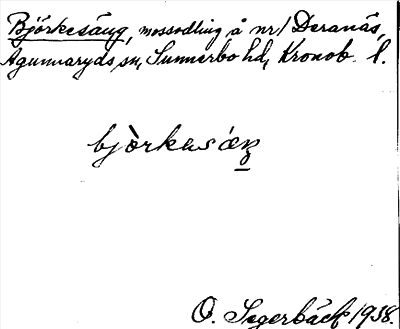 Björkesäng, mossodling å nr 1 Deranäs,
Agunnaryds sn, Sunnerbo hd, Kronob. l.
bjòrkesǽŋ
O. Segerbäck 1938.